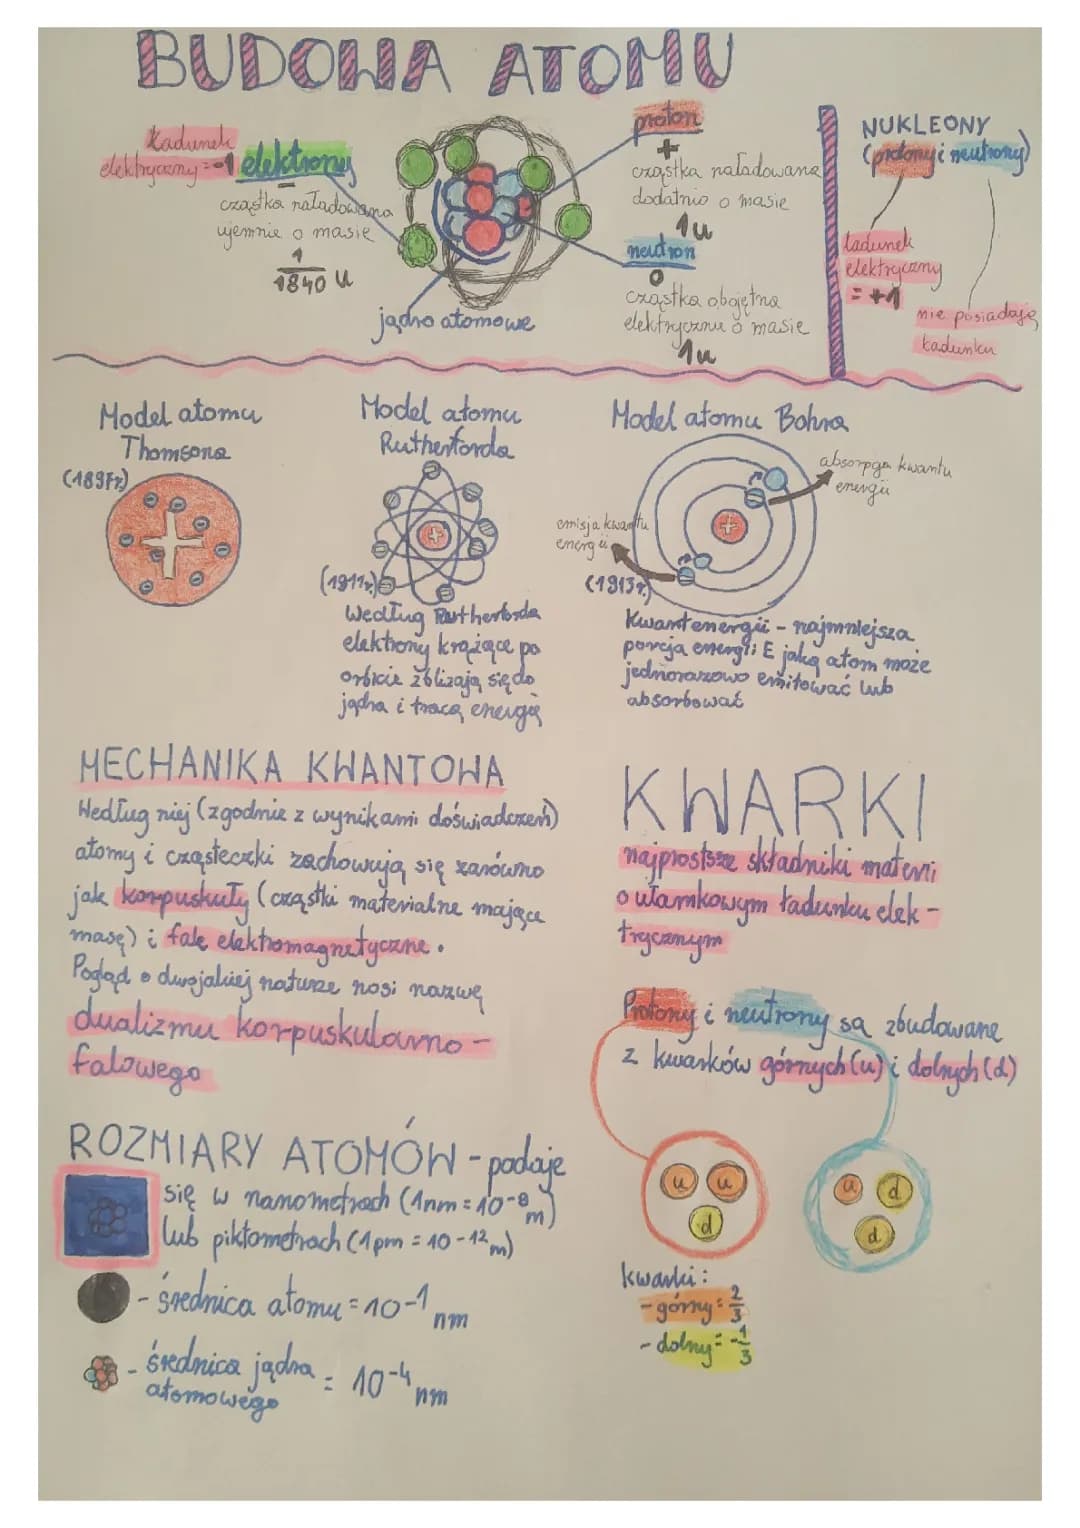 BUDOWA ATOMU
Ładunek
elektryczny = -1
elektrony
-
cząstka naładowana
ujemnie o masie
1
1840 u
jądro atomowe
proton
+
cząstka naładowana
dodatnio o masie
1u
neutron
0
cząstka obojętna
elektrycznie o masie
1u
NUKLEONY
(protony i neutrony)
ładunek
elektryczny
= +1
nie posiadają
ładunku
Model atomu
Thomsona
(1897r.)
Model atomu
Rutherforda
(1911r.)
Według Rutherforda
elektrony krążące po
orbicie zbliżają się do
jądra i tracą energię
Model atomu Bohra
absorpcja kwantu
energii
emisja kwantu
energii
(1913r.)
Kwant energii - najmniejsza
porcja energii E jaką atom może
jednorazowo emitować lub
absorbować
MECHANIKA KWANTOWA
Według niej (zgodnie z wynikami doświadczeń)
atomy i cząsteczki zachowują się zarówno
jak korpuskuły (cząstki materialne mające
masę) i fale elektromagnetyczne.
Pogląd o dwojakiej naturze nosi nazwę
dualizmu korpuskularno-
falowego
ROZMIARY ATOMÓW - podaje
się w nanometrach (1nm = 10-8 m)
lub piktometrach (1pm = 10-12 m)
- średnica atomu = 10-1 nm
- średnica jądra = 10-4 nm
atomowego
KWARKI
najprostsze składniki materii
o ułamkowym ładunku elek-
trycznym
Protony i neutrony są zbudowane
z kwarków górnych (u) i dolnych (d)
u u
d
u d
d
kwarki:
- górny = 2/3
- dolny = -1/3